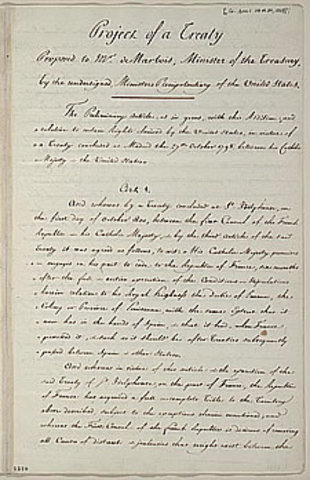 Project of a Treaty
Proposed to Mr. de Marbois, Minister of the Treasury
by the undersigned, Ministers Plenipotentiary of the United States.
The Preliminary Articles, as in gross, with the Addition, and
a relation to certain Rights claimed by the United States, in virtue of
a Treaty concluded at Madrid the 27th October 1795, between his Catholic
Majesty & the United States
Art. 1.
And whereas by a Treaty concluded at St. Ildephonso, on
the first day of October 1800, between the first Consul of the French
Republic & his Catholic Majesty, & by the third article of the said
Treaty it was agreed as follows, to wit, "His Catholic Majesty promises
& engages on his part to cede to the Republic of France, six months
after the full & entire execution of the Conditions & Stipulations
herein relative to his Royal Highness the Duke of Parma, the
Colony or Province of Louisiana with the same Extent that it
now has in the hands of Spain, & that it had when France
possessed it, & such as it should be after Treaties subsequently
passed between Spain & other Nations.
And whereas in virtue of this article & the execution of the
said Treaty of St. Ildephonso, on the part of France, the Republic
of France has acquired a full & complete Title to the Territory
above described subject to the exceptions therein mentioned, and
whereas the First Consul of the french Republic is desirous of removing
all Causes of distrust & jealousies that might exist between the